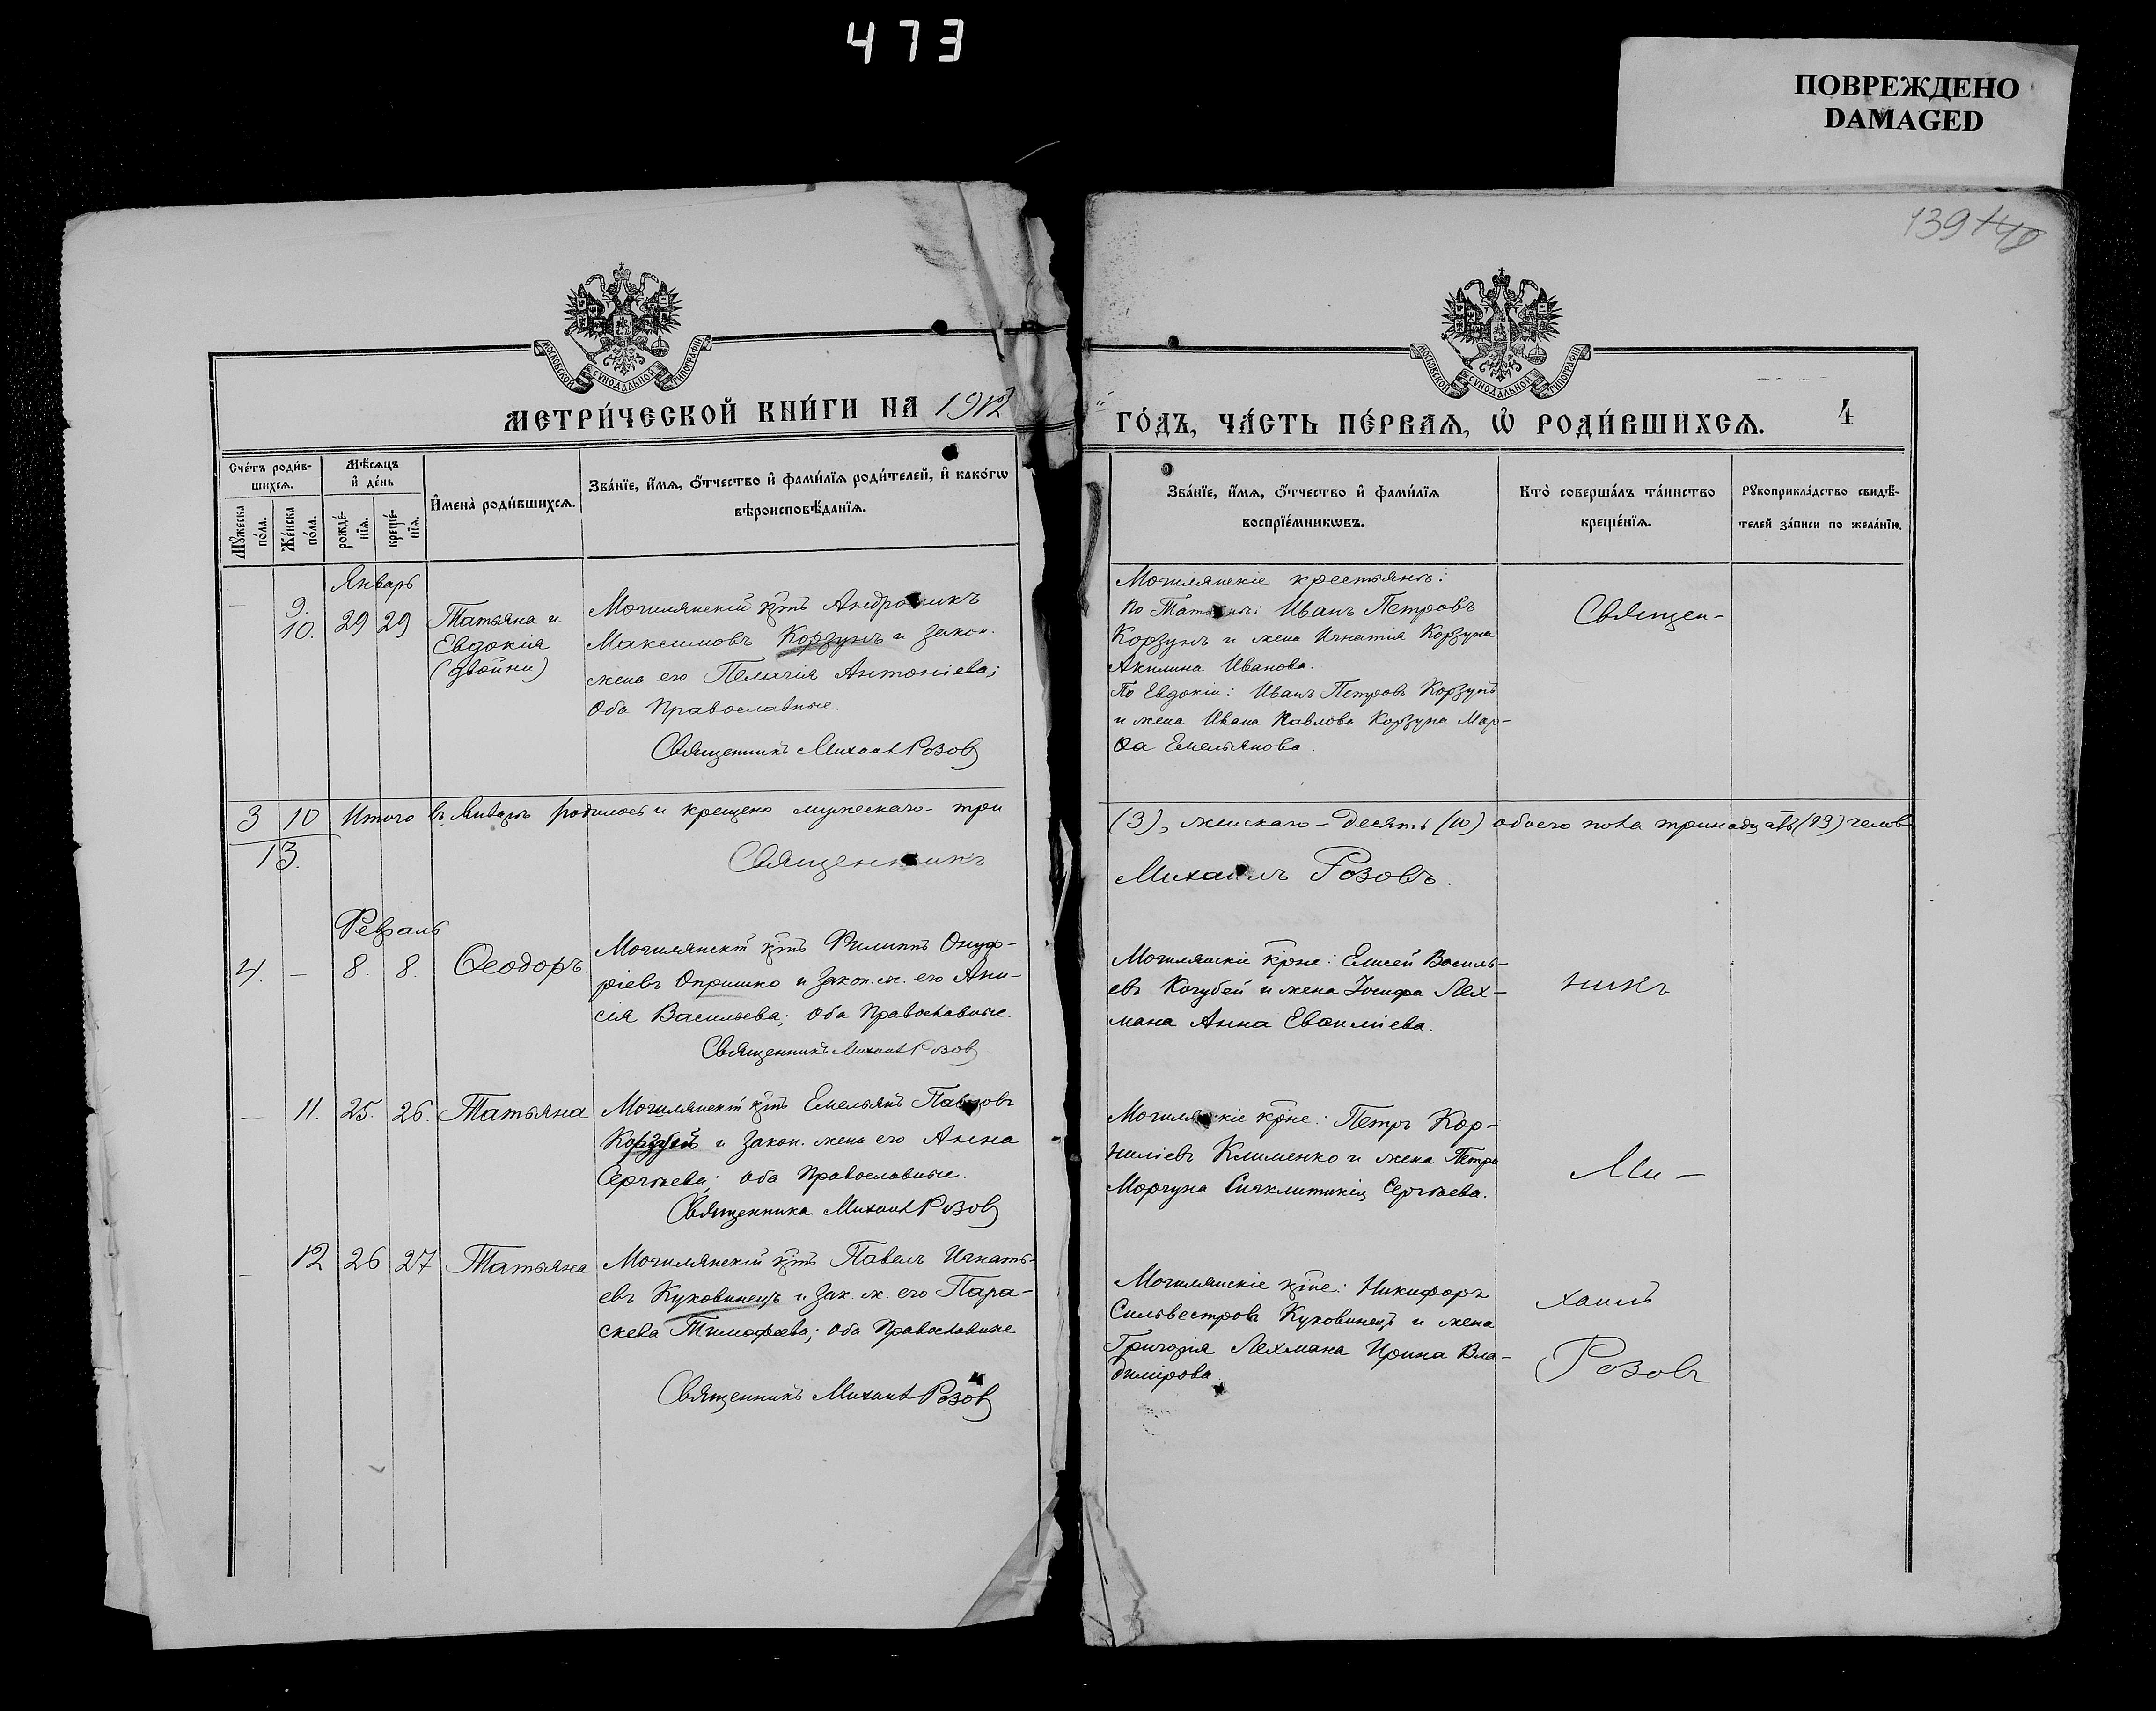 473
ПОВРЕЖДЕНО
DAMAGED
139 140
МОСКОВСКОЙ СѴНОДАЛЬНОЙ ТИПОГРАФІИ
МОСКОВСКОЙ СѴНОДАЛЬНОЙ ТИПОГРАФІИ
МЕТРИ́ЧЕСКОЙ КНИ́ГИ НА 1912
ГО́ДЪ, ЧА́СТЬ ПЕ́РВАЯ, Ѡ҆ РОДИ́ВШИХСѦ. 4
Сче́тъ роди́в-
шихсѧ.
Мѣ́сѧцъ
и҆ де́нь
Мꙋ́жеска
по́ла.
Же́нска
по́ла.
рожде́-
нїѧ.
креще́-
нїѧ.
И҆мена̀ роди́вшихсѧ.
Зва́нїе, и҆́мѧ, ѻ҆́тчество и҆ фами́лїѧ роди́телей, и҆ како́гѡ
вѣроисповѣ́данїѧ.
Зва́нїе, и҆́мѧ, ѻ҆́тчество и҆ фами́лїѧ
воспрїе́мникѡвъ.
Кто̀ соверша́лъ та́инство
креще́нїѧ.
Рꙋкоприкла́дство свидѣ́-
телей за́писи по жела́нїю.
Январь
9.
10. 29 29
Татьяна и
Евдокія
(двойни)
Могилянскій кр̃нъ Андроникъ
Максимовъ Корзунъ и закон.
жена его Пелагія Антоніева;
Оба Православные
Священникъ Михаилъ Розовъ
Могилянскіе крестьяне:
По Татьянѣ: Иванъ Петровъ
Корзунъ и жена Игнатія Корзуна
Акилина Иванова.
По Евдокіи: Иванъ Петровъ Корзунъ
и жена Ивана Павлова Корзуна Мар-
ѳа Емельянова.
Священ-
3 10 Итого въ Январѣ родилось и крещено мужескаго - три
(3), женскаго - десять (10) обоего пола тринадцать (13) челов
13.
Священникъ
Михаилъ Розовъ.
Февраль
4. - 8. 8. Ѳеодоръ.
Могилянскій кр̃нъ Филиппъ Онуф-
ріевъ Опришко и закон. ж. его Ани-
сія Васильева; Оба Православные.
Священникъ Михаилъ Розовъ
Могилянскіе кр̃не: Елисей Василь-
евъ Кочубей и жена Іосифа Лях-
мана Анна
никъ
- 11. 25. 26. Татьяна
Могилянскій кр̃нъ Емельянъ Павловъ
и закон. жена его Анна
Сергѣева; оба Православные.
Священника Михаилъ Розовъ
Могилянскіе кр̃не: Петръ Кор-
ниліевъ Клименко и жена Петра
Моргуна Синклитикія Сергѣева.
Ми-
- 12 26 27 Татьяна
Могилянскій кр̃нъ Павелъ Игнать-
евъ Куковинецъ и зак. ж. его Пара-
скева Тимофеева; оба Православные
Священникъ Михаилъ Розовъ
Могилянскіе кр̃не: Никифоръ
Сильвестровъ Куковинецъ и жена
Григорія Ляхмана Ирина Вла-
димірова
хаилъ
Розовъ